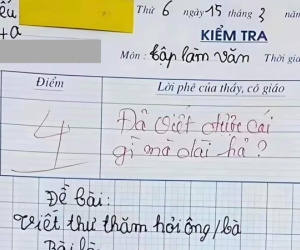 ểu
+a
Thứ 6 ngày 15 tháng 3 năm
KIỂM TRA
Môn: Tập làm văn Thời gia
Điểm Lời phê của thầy, cô giáo
4 Đã viết được cái
gì mà dài hả?
Đề bài:
Viết thư thăm hỏi ông/bà
Bài là